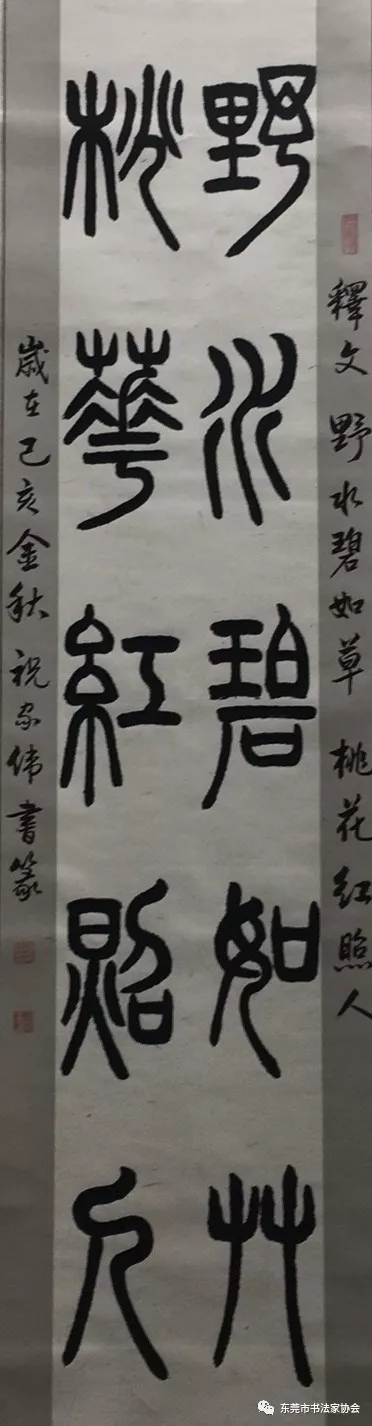 釋文 野水碧如草 桃花红照人
野水碧如艸
桃華紅照人
歲在己亥金秋祝家伟書篆
东莞市书法家协会